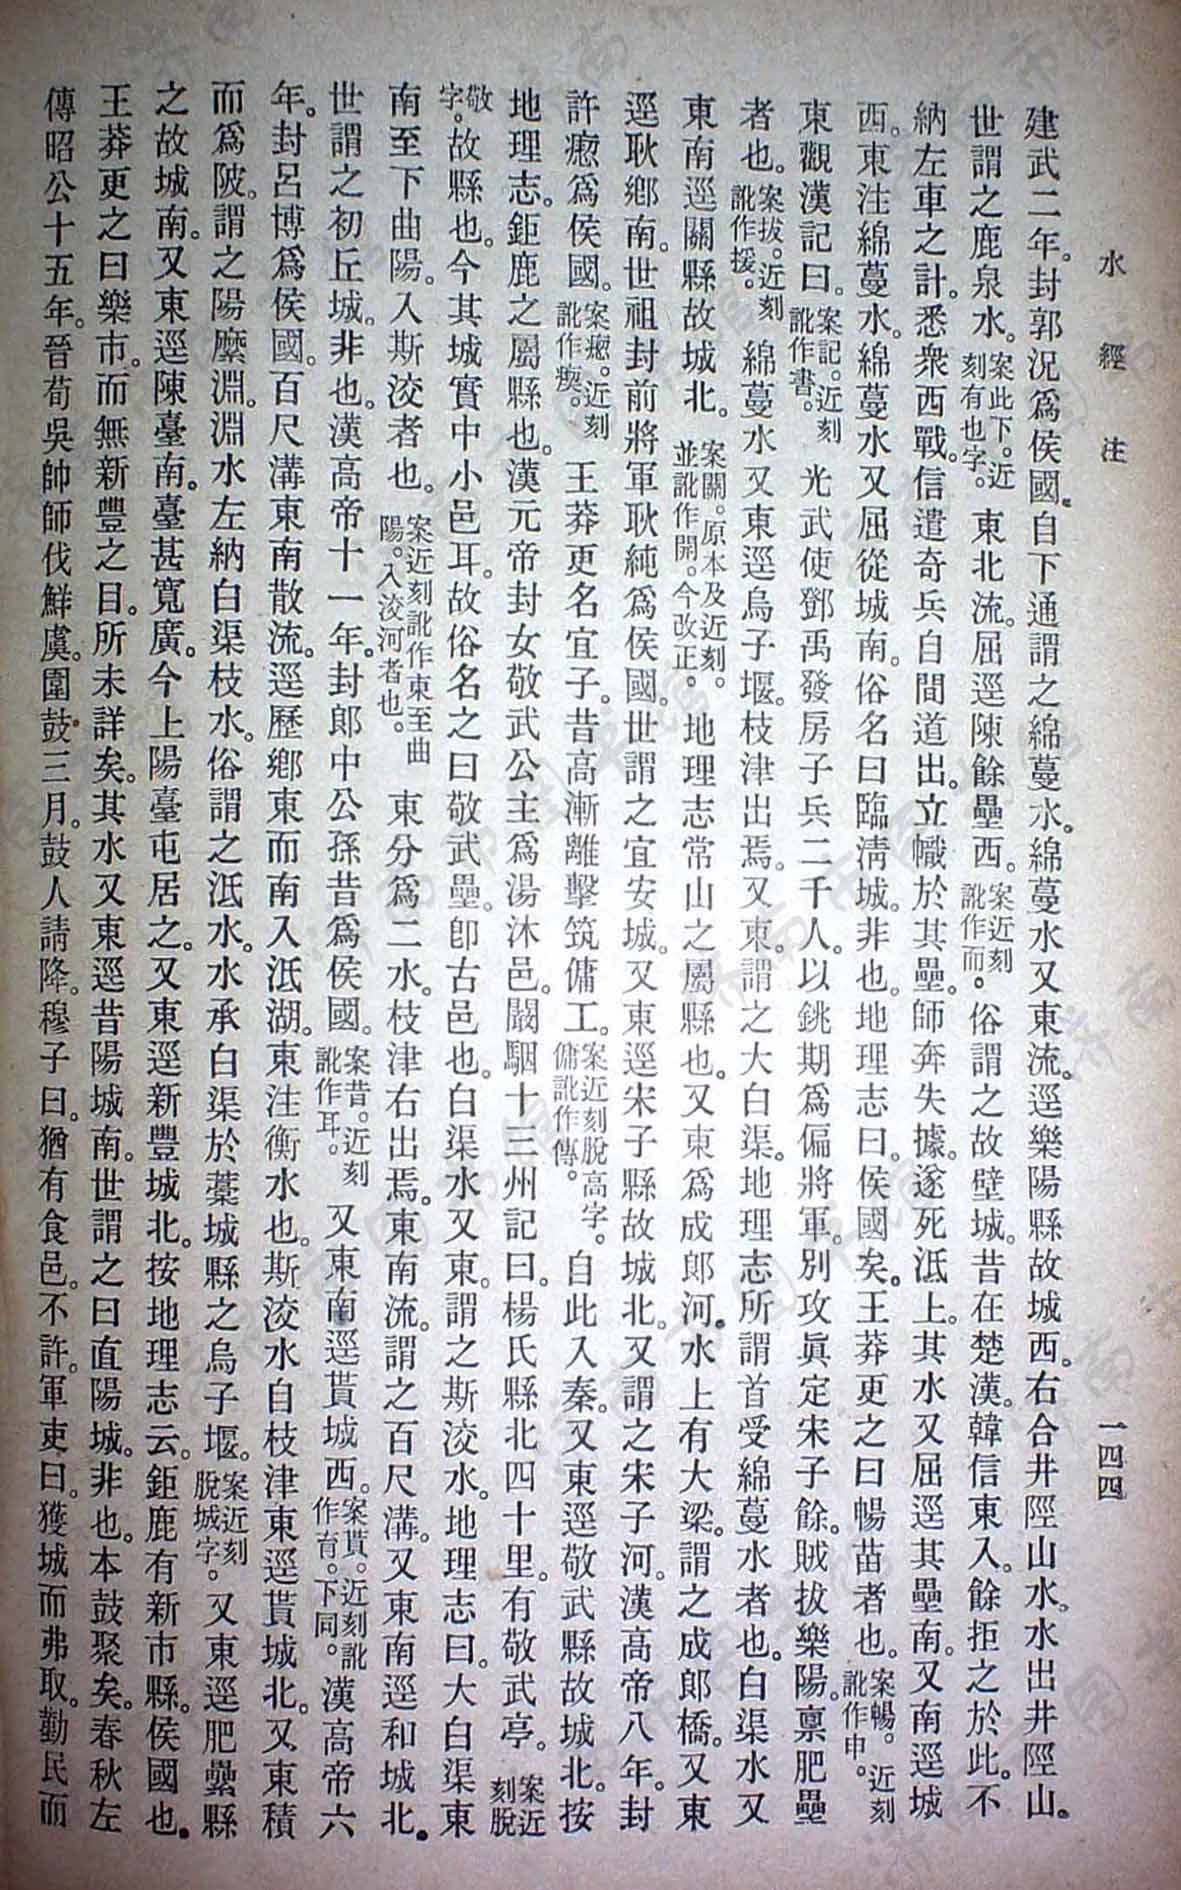 水經注
一四四
建武二年。封郭況爲侯國。自下通謂之綿蔓水。綿蔓水又東流。逕樂陽縣故城西。右合井陘山水。水出井陘山。
世謂之鹿泉水。案此下。近刻有也字。東北流。屈逕陳餘壘西。案近刻訛作而。俗謂之故壁城。昔在楚漢。韓信東入。餘拒之於此。不
納左車之計。悉衆西戰。信遣奇兵自間道出。立幟於其壘。師奔失據。遂死泜上。其水又屈逕其壘南。又南逕城
西。東注綿蔓水。綿蔓水又屈從城南。俗名曰臨清城。非也。地理志曰。侯國矣。王莽更之曰暢苗者也。案暢。近刻訛作申。
東觀漢記曰。案記。近刻訛作書。光武使鄧禹發房子兵二千人。以銚期爲偏將軍。別攻眞定宋子餘。賊拔樂陽。稟肥壘
者也。案拔。近刻訛作援。綿蔓水又東逕烏子堰。枝津出焉。又東。謂之大白渠。地理志所謂首受綿蔓水者也。白渠水又
東南逕關縣故城北。案關。原本及近刻。並訛作開。今改正。地理志常山之屬縣也。又東爲成郎河。水上有大梁。謂之成郎橋。又東
逕耿鄉南。世祖封前將軍耿純爲侯國。世謂之宜安城。又東逕宋子縣故城北。又謂之宋子河。漢高帝八年。封
許瘛爲侯國。案瘛。近刻訛作瘈。王莽更名宜子。昔高漸離擊筑傭工。案近刻脫高字。傭訛作傳。自此入秦。又東逕敬武縣故城北。按
地理志。鉅鹿之屬縣也。漢元帝封女敬武公主爲湯沐邑。闞駰十三州記曰。楊氏縣北四十里。有敬武亭。案近刻脫
敬字。故縣也。今其城實中小邑耳。故俗名之曰敬武壘。卽古邑也。白渠水又東。謂之斯洨水。地理志曰。大白渠東
南至下曲陽。入斯洨者也。案近刻訛作東至曲陽。入洨河者也。東分爲二水。枝津右出焉。東南流。謂之百尺溝。又東南逕和城北。
世謂之初丘城。非也。漢高帝十一年。封郎中公孫昔爲侯國。案昔。近刻訛作耳。又東南逕貰城西。案貰。近刻訛作育。下同。漢高帝六
年。封呂博爲侯國。百尺溝東南散流。逕歷鄉東而南入泜湖。東注衡水也。斯洨水自枝津東逕貰城北。又東積
而爲陂。謂之陽縻淵。淵水左納白渠枝水。俗謂之泜水。水承白渠於藁城縣之烏子堰。案近刻脫城字。又東逕肥纍縣
之故城南。又東逕陳臺南。臺甚寬廣。今上陽臺屯居之。又東逕新豐城北。按地理志云。鉅鹿有新市縣。侯國也。
王莽更之曰樂市。而無新豐之目。所未詳矣。其水又東逕昔陽城南。世謂之曰直陽城。非也。本鼓聚矣。春秋左
傳昭公十五年。晉荀吳帥師伐鮮虞。圍鼓三月。鼓人請降。穆子曰。猶有食邑。不許。軍吏曰。獲城而弗取。勤民而